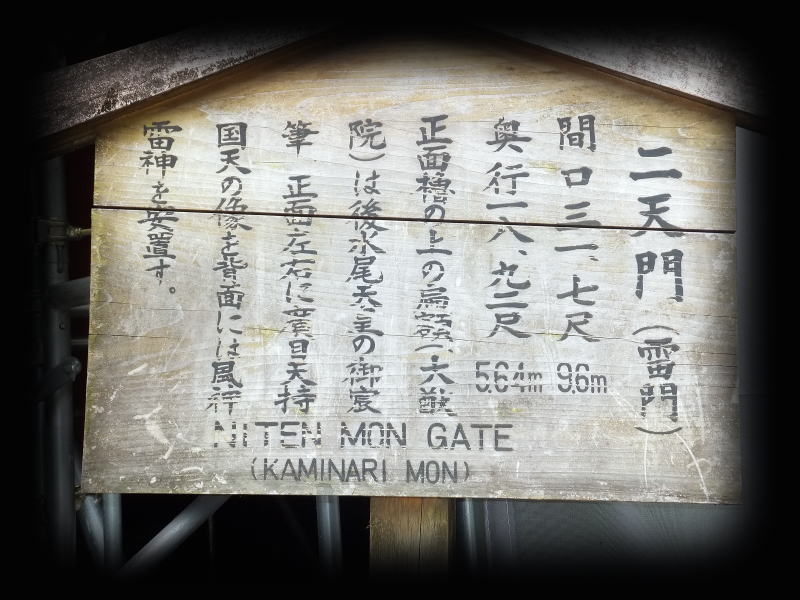 二天門(雷門)
間口三一、七尺 9.6m
奥行一八、九二尺 5.64m
正面櫓の上の扁額(大猷
院)は後水尾天皇の御宸
筆 正面左右に廣目天持
国天の像を背面には風神
雷神を安置す。
NITEN MON GATE
(KAMINARI MON)